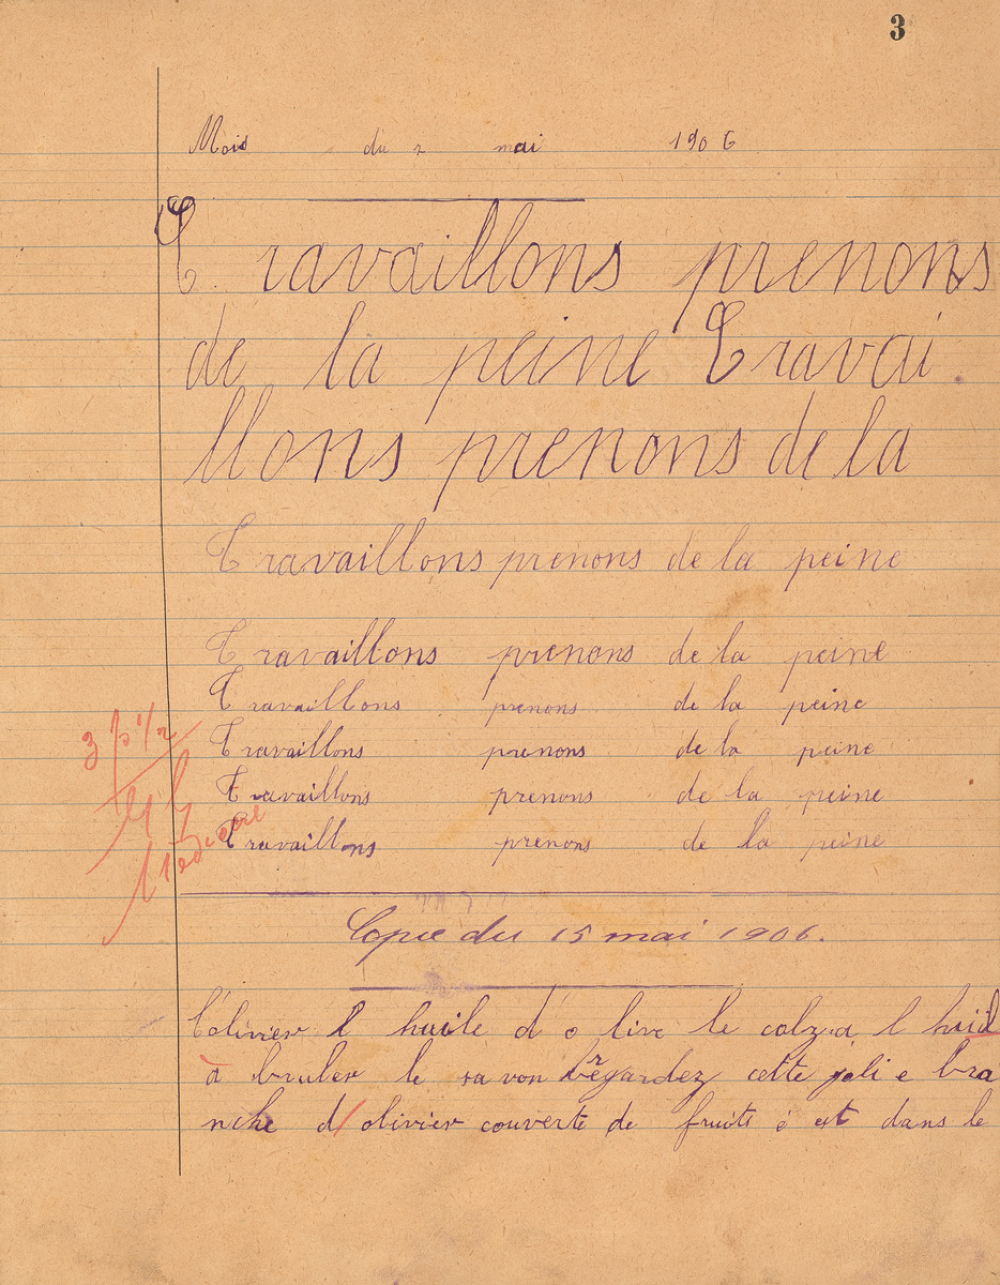 3
Mois du 2 mai 1906
Travaillons prenons
de la peine Travai
llons prenons de la
Travaillons prenons de la peine
Travaillons prenons de la peine
Travaillons prenons de la peine
Travaillons prenons de la peine
Travaillons prenons de la peine
Travaillons prenons de la peine
3 p 1/2
Médiocre
Copie du 15 mai 1906.
L'olivier l huile d o live le colza l huil
à bruler le sa von Regardez cette joli e bra
nche d/ olivier couverte de fruits c est dans le